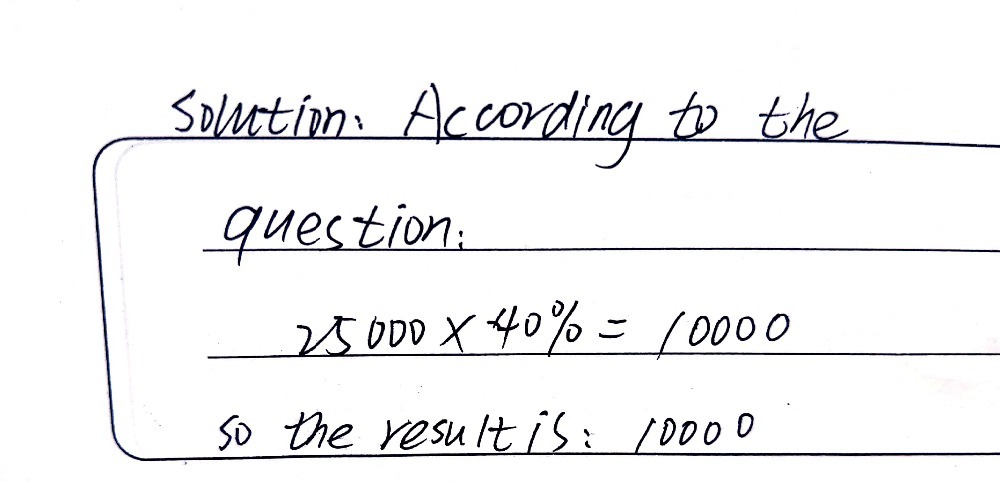 Solution: According to the
question:
25000 × 40% = 10000
so the result is: 10000